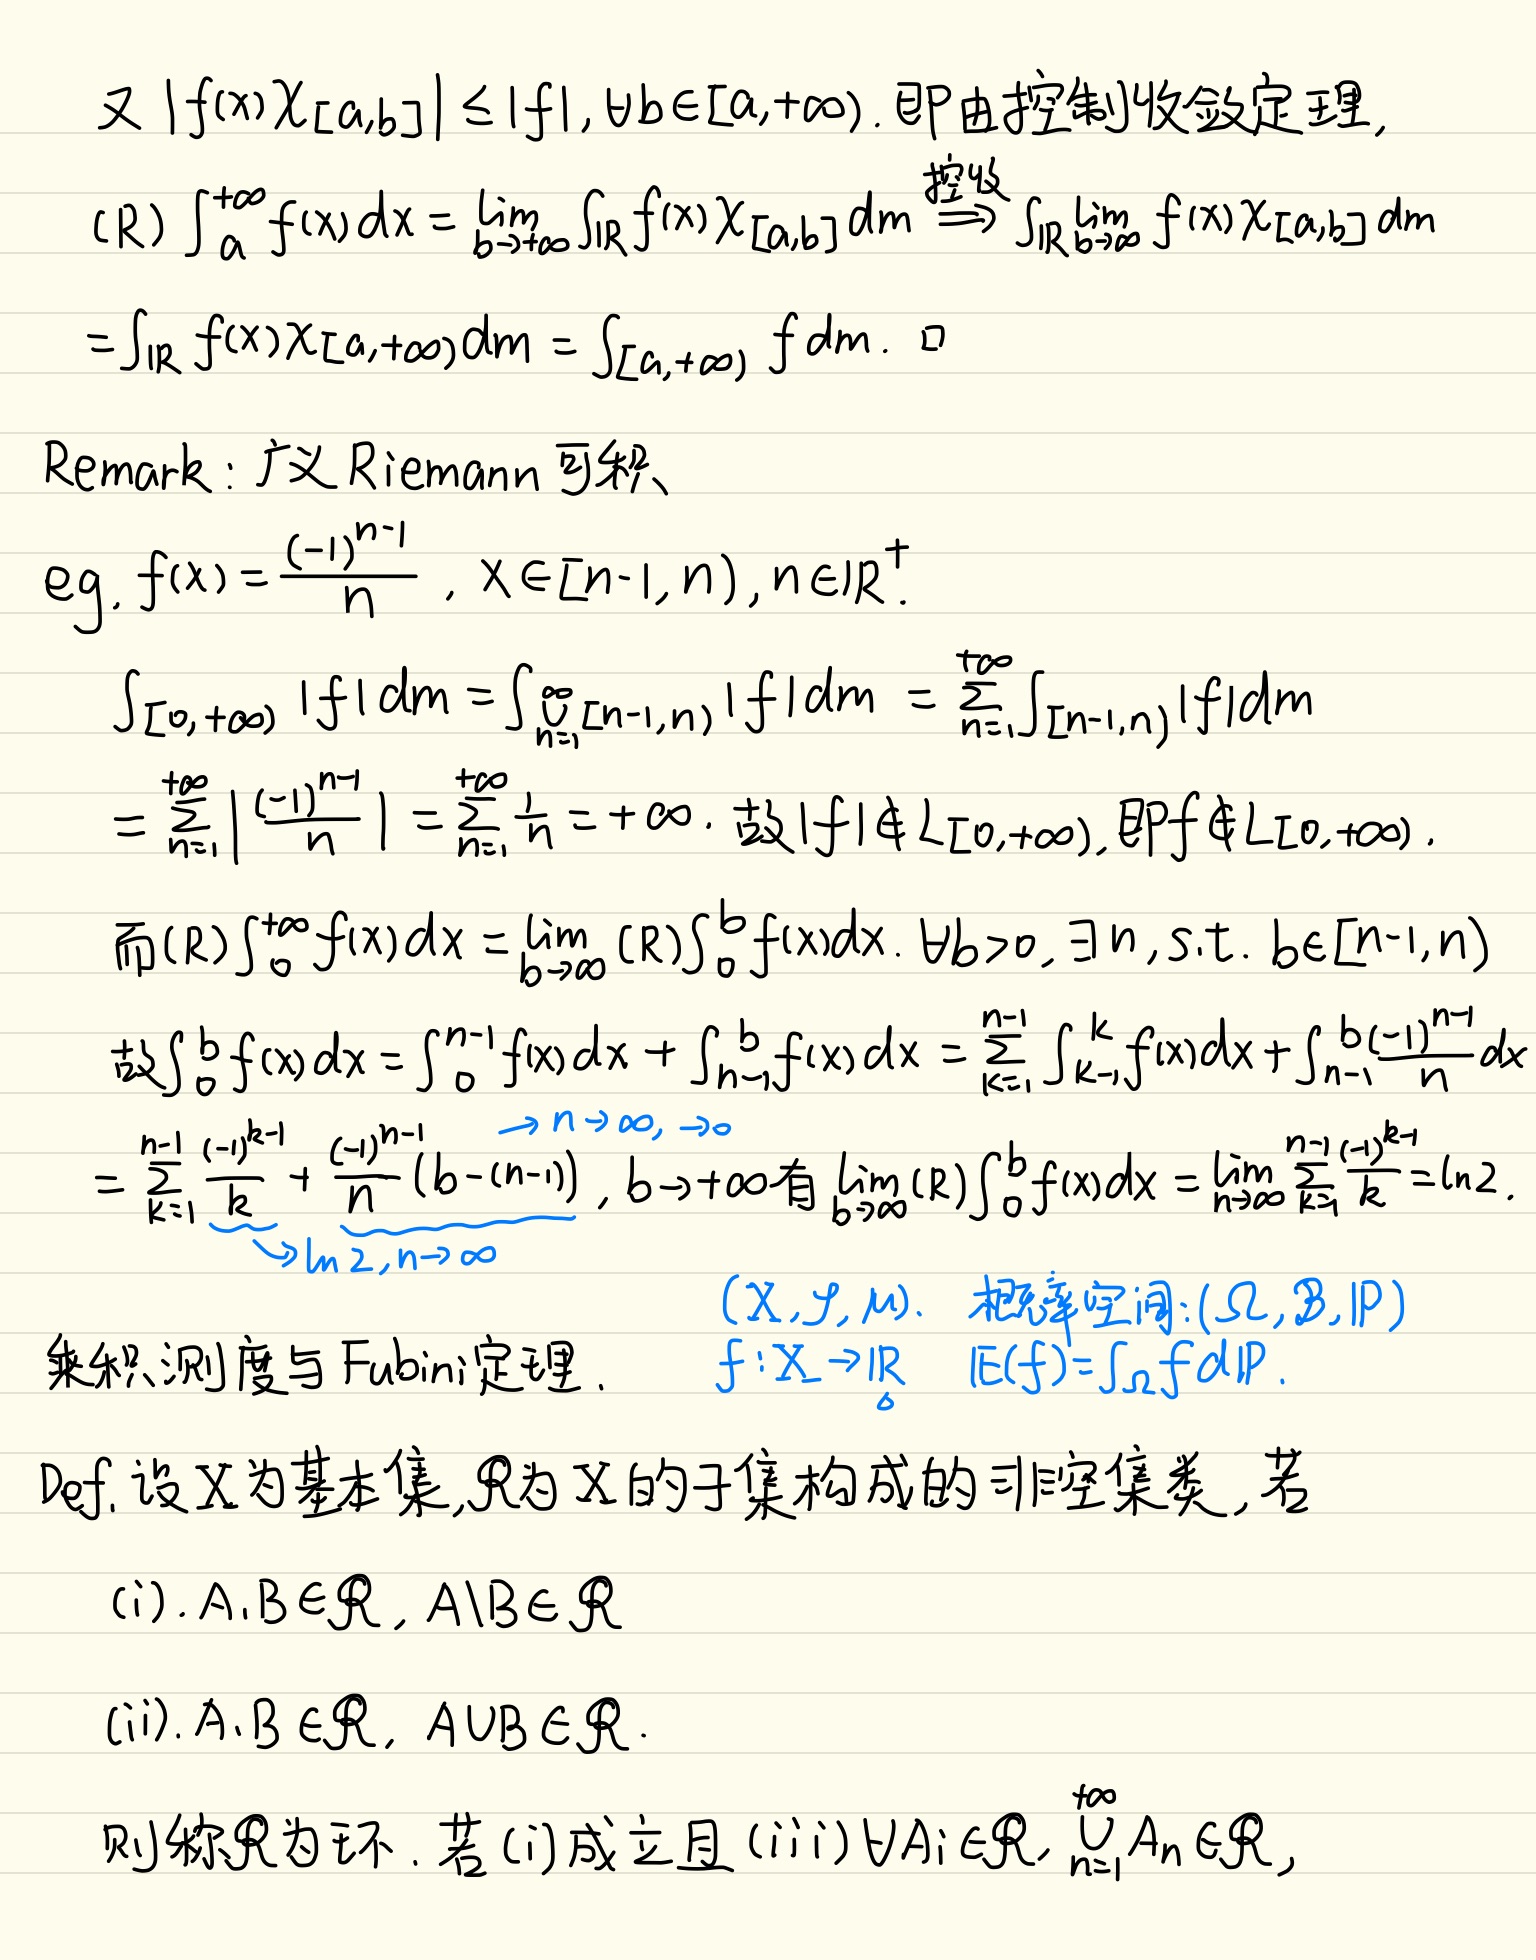 又 |f(x)χ_[a,b]| ≤ |f|, ∀b∈[a,+∞). 即由控制收敛定理,
(R) ∫_a^{+∞} f(x) dx = lim_{b→+∞} ∫_ℝ f(x) χ_[a,b] dm ⟹^{控收} ∫_ℝ lim_{b→∞} f(x) χ_[a,b] dm
= ∫_ℝ f(x) χ_[a,+∞) dm = ∫_[a,+∞) f dm. □
Remark: 广义 Riemann 可积、
eg. f(x) = (-1)^{n-1}/n , x∈[n-1, n), n∈ℝ^+.
∫_[0,+∞) |f| dm = ∫_{∪_{n=1}^{∞} [n-1,n)} |f| dm = ∑_{n=1}^{+∞} ∫_[n-1,n) |f| dm
= ∑_{n=1}^{+∞} |(-1)^{n-1}/n| = ∑_{n=1}^{+∞} 1/n = +∞. 故|f|∉L[0,+∞), 即f∉L[0,+∞).
而(R)∫_0^{+∞} f(x) dx = lim_{b→∞} (R)∫_0^b f(x)dx. ∀b>0, ∃n, s.t. b∈[n-1, n)
故∫_0^b f(x) dx = ∫_0^{n-1} f(x) dx + ∫_{n-1}^b f(x) dx = ∑_{k=1}^{n-1} ∫_{k-1}^k f(x)dx + ∫_{n-1}^b (-1)^{n-1}/n dx
→ n→∞, →0
= ∑_{k=1}^{n-1} (-1)^{k-1}/k + (-1)^{n-1}/n (b-(n-1)), b→+∞有 lim_{b→∞} (R)∫_0^b f(x)dx = lim_{n→∞} ∑_{k=1}^{n-1} (-1)^{k-1}/k = ln2.
→ ln 2, n→∞
(X, 𝒮, μ). 概率空间: (Ω, ℬ, ℙ)
乘积测度与 Fubini 定理. f: X → ℝ 𝔼(f)=∫_Ω f dℙ.
Def. 设 X 为基本集, ℛ为 X 的子集构成的非空集类, 若
(i). A.B∈ℛ, A\B∈ℛ
(ii). A.B∈ℛ, A∪B∈ℛ.
则称ℛ为环. 若 (i)成立且 (iii) ∀Ai∈ℛ, ∪_{n=1}^{+∞} An∈ℛ,